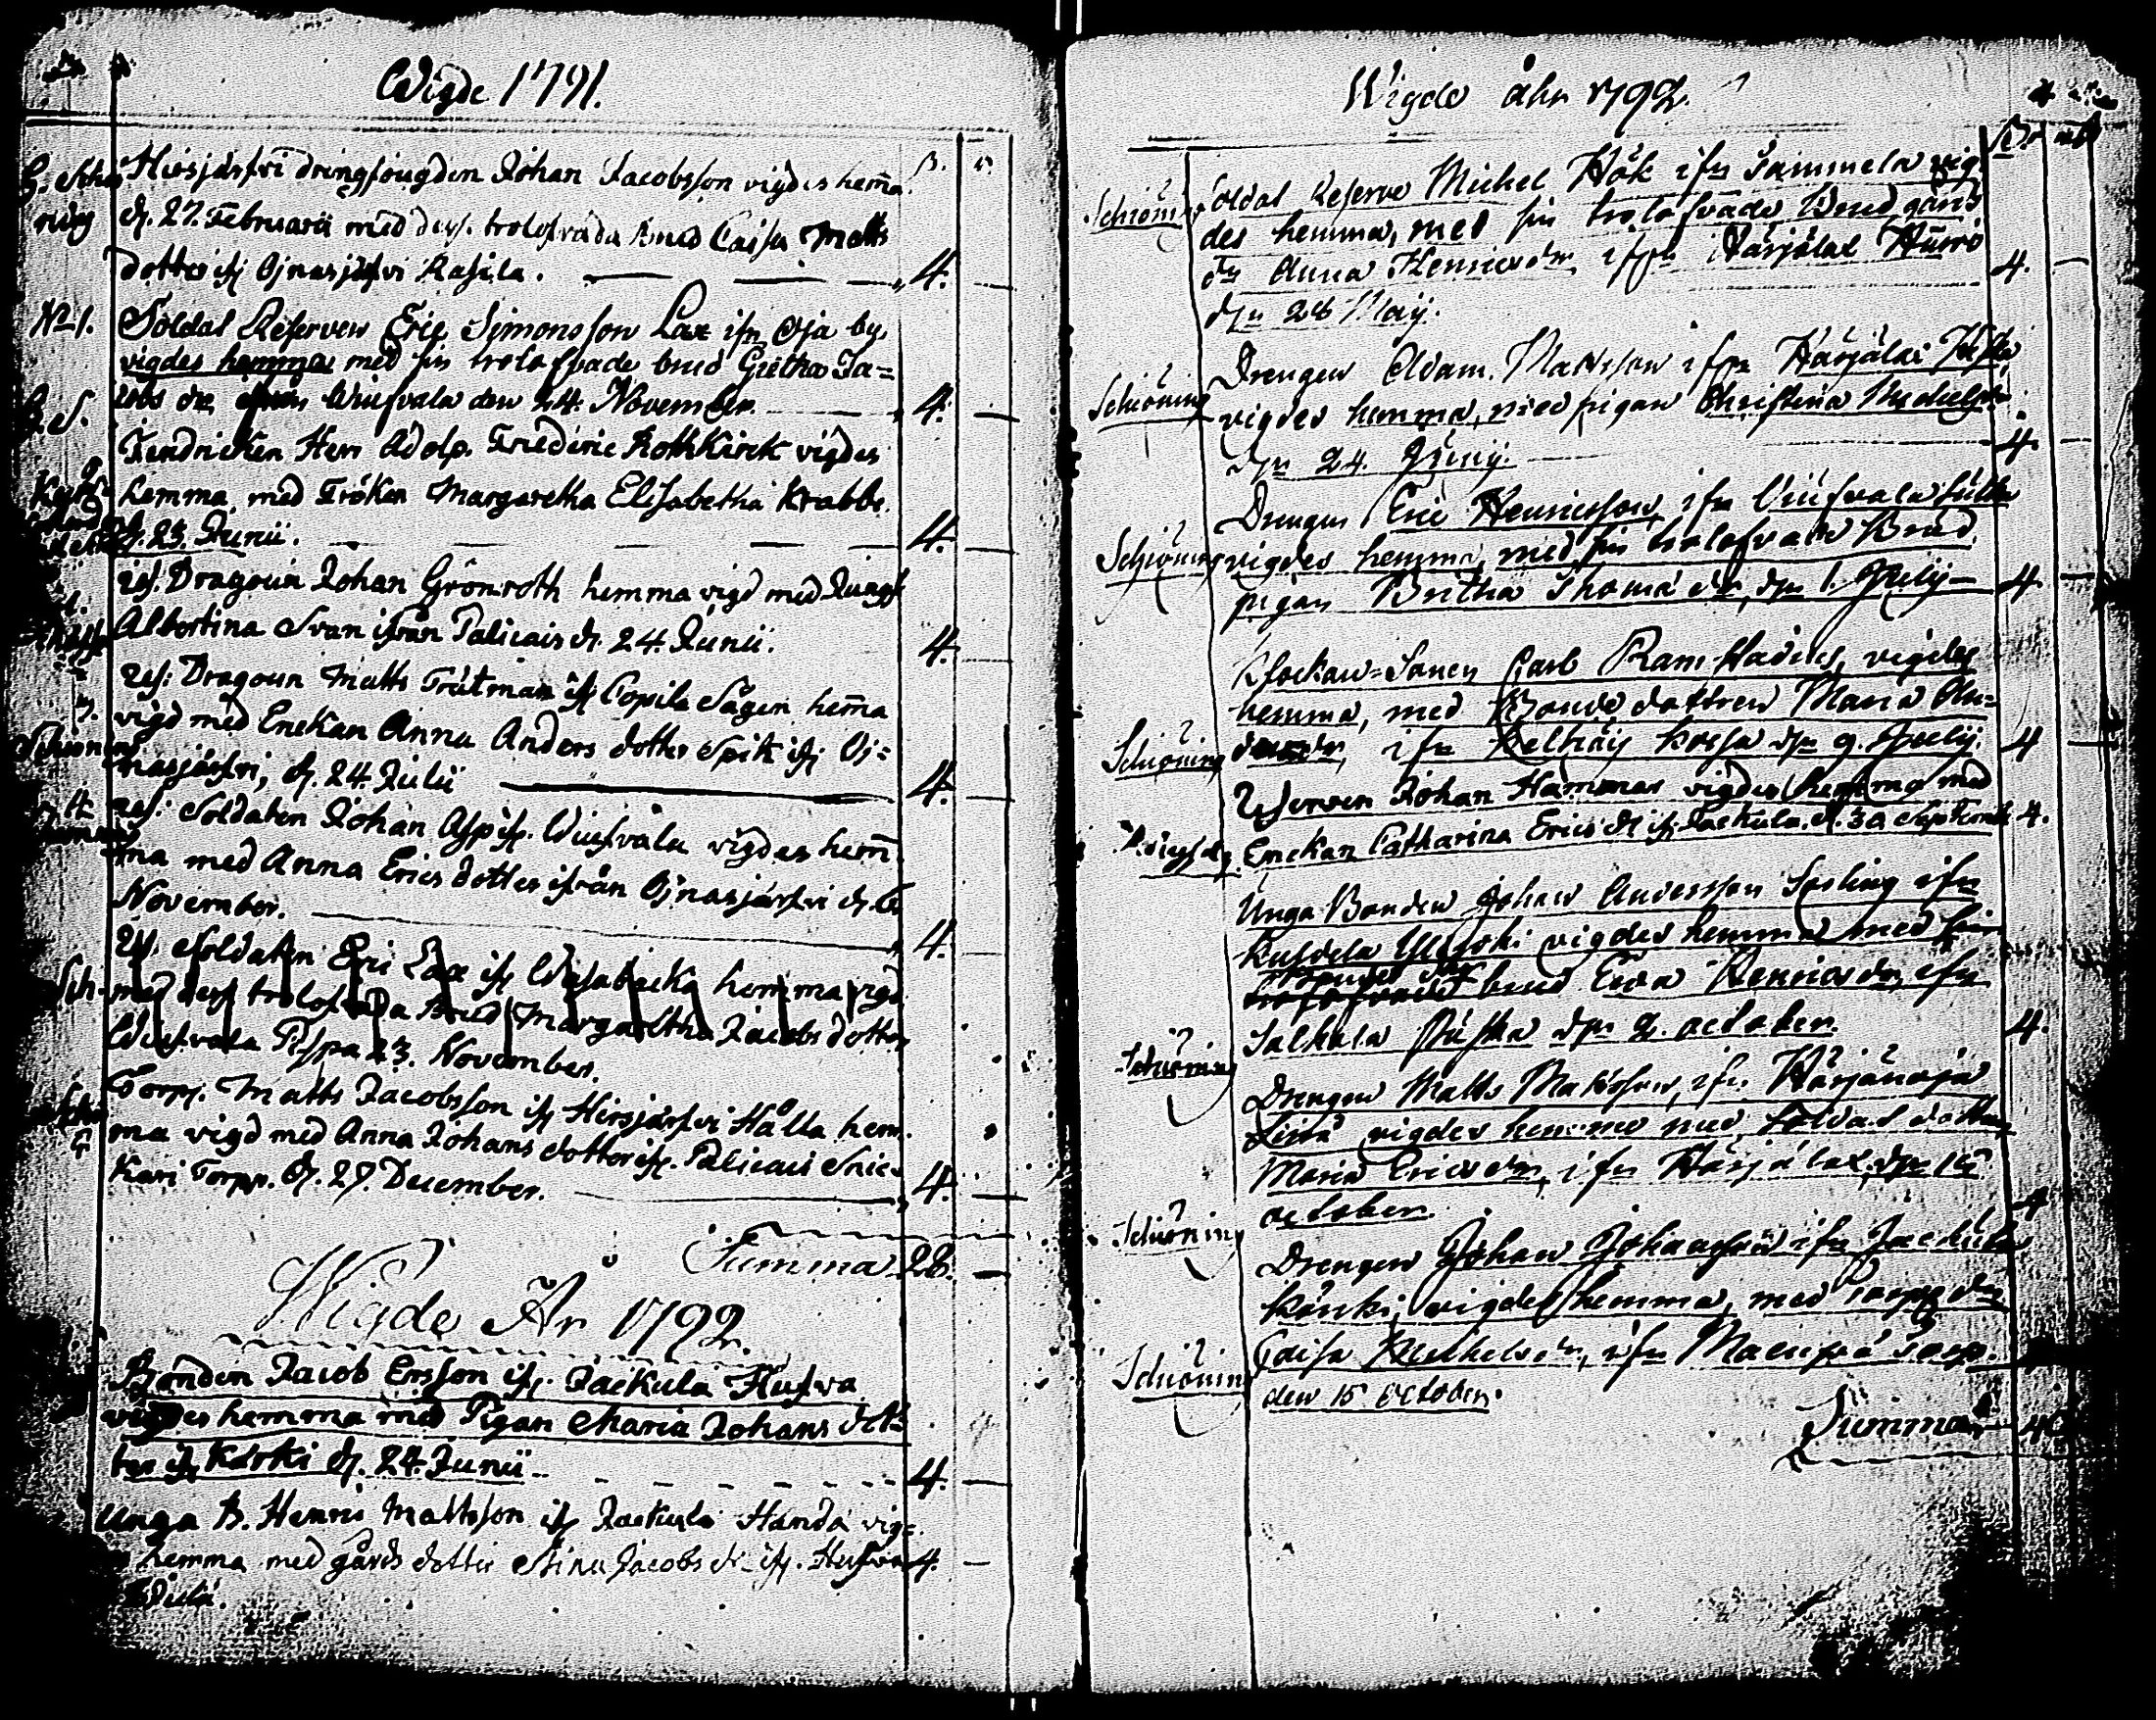 Wigde 1791.
Hirsjärfvi drängfougden Johan Jacobsson vigdes hem̄a
d. 27. Februarii med dess trolofvada Brud Caisa Matts
dotter ifj Ojnasjärfvi Rasila. 4.
No 1. Soldat Reserven Eric Simonsson Lax ifrn Oja by,
vigdes hemma med sin trolofvade brud Gretha Ja=
cobs dr ifrån Wiufvala den 24. November. 4.
Fendricken Herr Adolp. Friederic Rothkirck vigdes
hemma med Fröken Margaretha Elisabetha Krabbe.
d. 23. Junii. 4.
res. Dragoun Johan Grönroth hemma vigd med Jungf
Albertina Svan ifrån Palicais d. 24. Junii. 4.
res: Dragoun Matts Trütman ifj Copila Sågen hem̄a
3. vigd med Enckan Anna Anders dotter Spik ifj Oj=
Schöning nasjärfvi, d. 24. Julii 4.
res: Soldaten Johan Asp ifj. Wiufvala vigdes hem̄
ma med Anna Erics dotter ifrån Ojnasjärfvi d. 6
November. 4.
res. Soldaten Eric Lax ifj Wasabacka hemma vigd
Sch. med dess trolofvada Brud Margaretha Jacobs dotter
Wiufvala Pispa 23. November.
Torpp. Matts Jacobsson ifj Hirsjärfvi Hålla hem
ma vigd med Anna Johans dotter ifj. Palicais Snic=
Kari Torpp. d. 27 December. 4.
Summa 28.
Wigde År 1792.
Bonden Jacob Ersson ifj. Jackula Hufva
vigdes hemma med Pigan Maria Johans dot=
ter ifj Kärki d. 24. Junii 4.
Unga B. Henric Mattsson ifj Jackula Handa vig=
hemma med gårds dotter Stina Jacobs dr ifj. Hufva 4.
Wigde åhr 1792.
Schiöning Soldat Reserve Michel Hök ifrn Sammela vig
des hemma, med sin trolofvade Brud, gårds
dr Anna Henricsdr ifrn Härjälax Hüuro 4.
dn 28 Maij.
Drengen Adam Matsson ifrn Härjälax
Schiöning vigdes hemma, med pigan Christina Michelsdr
dn 24. Junij. 4.
Drengen Eric Henricsson, ifrn Wiufvala
Schiöning vigdes hemma, med sin trolofvade Brud,
pigan Britha Thomædr, dn 1. Julij 4.
Klockar=Sonen Carl Ramstadius, vigdes
hemma, med Bonde dottren Maria An=
Schiöning dersdr, ifrn Keikiäis Kossa dn 9. Julij. 4
Reserven Johan Hammar vigdes hemma med
Enckan Catharina Erics dr ifj. Jackula. d. 30 September 4.
Unga Bonden Johan Andersson Sorling ifrn
Kusdela Ylisoki vigdes hemma med sin
brud Ewa Henricsdr, ifrn
Schiöning Salkula dn 2. october. 4.
Drengen Matts Matsson, ifrn Härjänoja
vigdes hemma med, Soldat dotter
Maria Ericsdr, ifrn Härjälax, dn 15
october. 4
Schiöning
Drengen Johan Johansson ifrn Jackula
Kärki, vigdes hemma, med Torpp dr
Schiöning Caisa Michelsdr, ifrn Torp.
den 15 October.
Summa 40